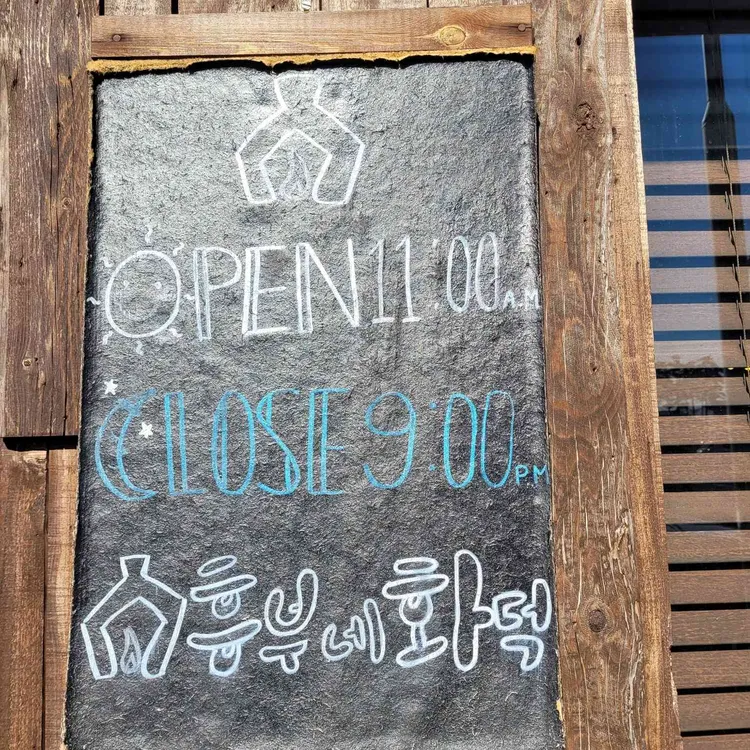 OPEN 11:00 A.M
CLOSE 9:00 P.M
흥부네 화덕